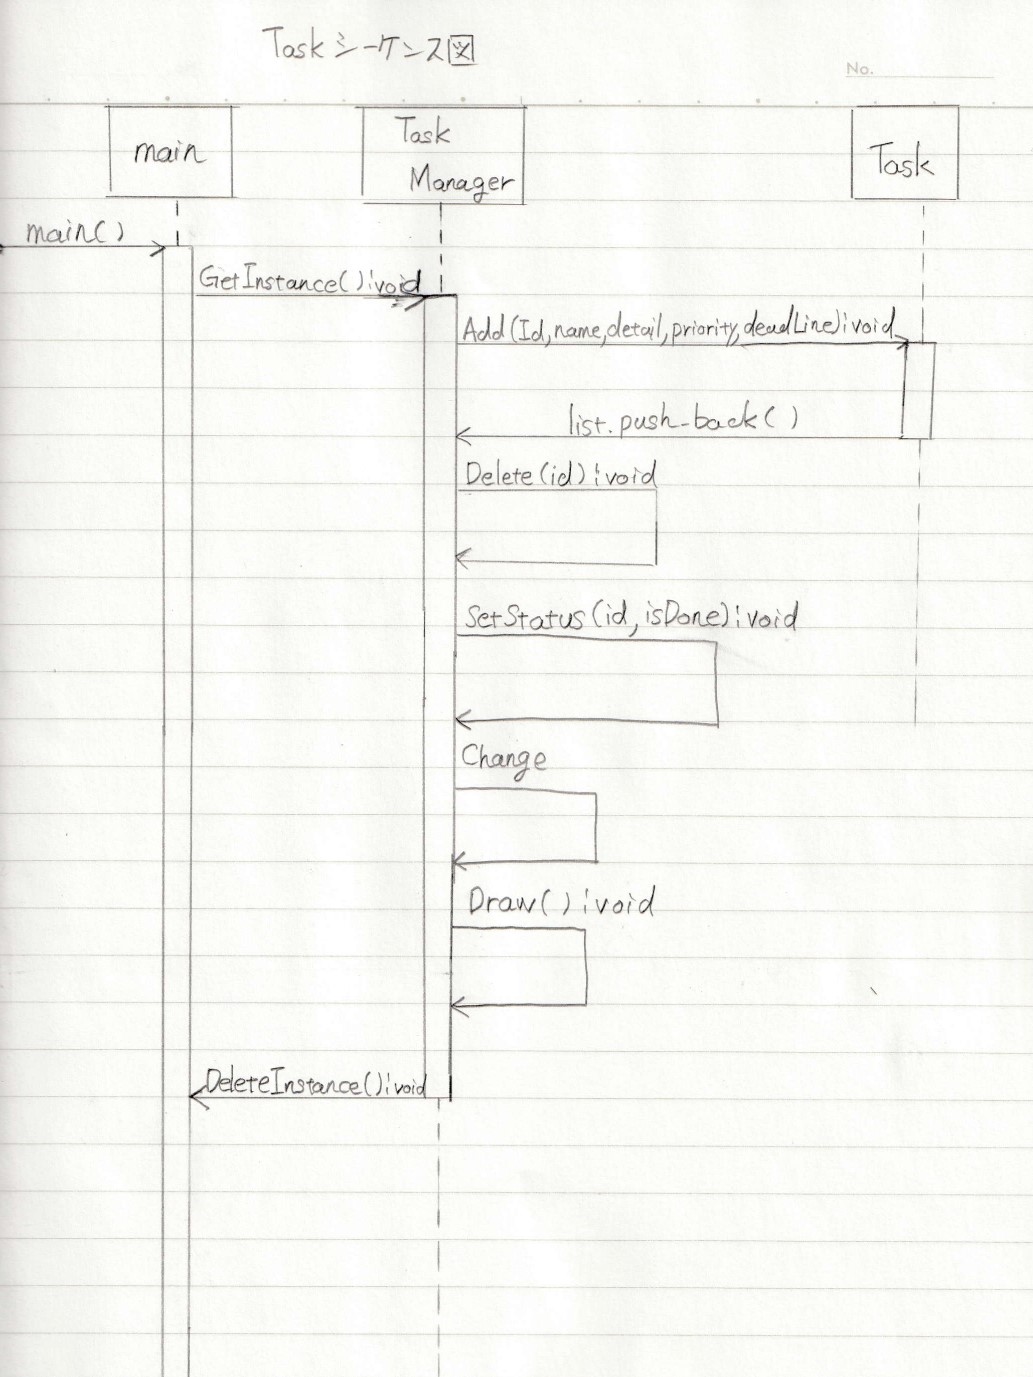 Task シーケンス図
No.
main
Task
Manager
Task
main()
GetInstance():void
Add(Id,name,detail,priority,deadLine):void
list.push_back()
Delete(id):void
SetStatus(id,isDone):void
Change
Draw():void
DeleteInstance():void